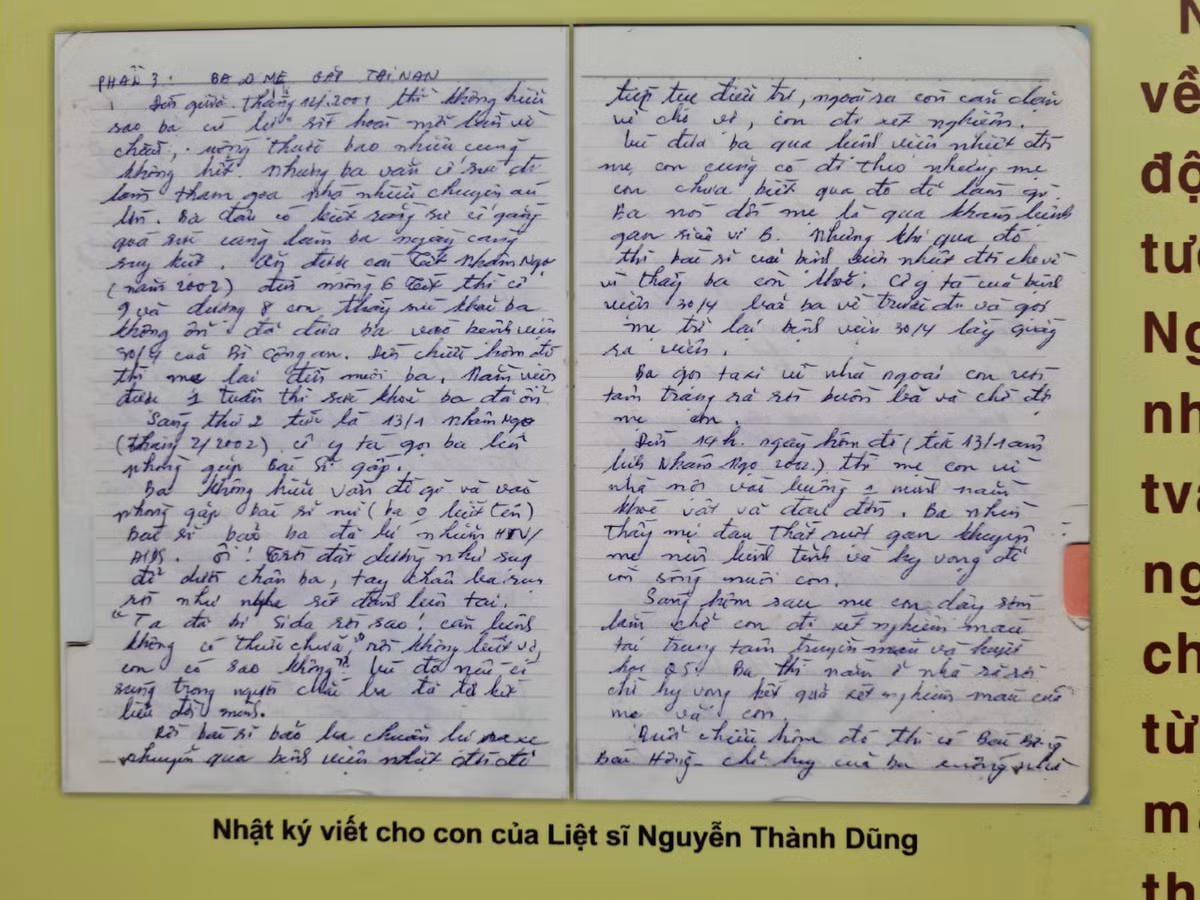 PHẦN 3. BA & MẸ GẶP TAI NẠN
Đến giữa tháng 12/2001 thì không hiểu
sao ba cứ bị sốt hoài mỗi lần về
chiều, uống thuốc bao nhiêu cũng
không hết. Nhưng ba vẫn cố sức đi
làm tham gia nhiều chuyên án
lớn. Ba đâu có biết rằng sự cố gắng
quá sức càng làm ba ngày càng
suy kiệt. Ăn được cái Tết Nhâm Ngọ
(năm 2002) đến mồng 6 Tết thì cô
9 và dượng 8 con, thấy sức khỏe ba
không ổn đã đưa ba vào bệnh viện
30/4 của Bộ Công an. Đến chiều hôm đó
thì mẹ lại đến nuôi ba. Nằm viện
được 1 tuần thì sức khỏe ba đã ổn
Sáng thứ 2 tức là 13/1 Nhâm Ngọ
(tháng 2/2002) cô y tá gọi ba lên
phòng giúp Bác Sĩ gấp.
Ba không hiểu vấn đề gì và vào
phòng gặp bác sĩ nữ (ba 0 biết tên)
Bác sĩ bảo ba đã bị nhiễm HIV/
AIDS. Ôi! Trời đất dường như sụp
đổ dưới chân ba, tay chân ba run
rồi như nghe sét đánh bên tai.
"Ta đã bị Sida rồi sao! căn bệnh
không có thuốc chữa, rồi không biết vợ,
con có sao không". Lúc đó nếu có
súng trong người chắc ba đã tự kết
liễu đời mình.
Rồi bác sĩ bảo ba chuẩn bị ra xe
chuyển qua bệnh viện nhiệt đới để
tiếp tục điều trị, ngoài ra còn căn dặn
về chở vợ, con đi xét nghiệm.
Lúc đưa ba qua bệnh viện nhiệt đới
mẹ con cũng có đi theo nhưng mẹ
con chưa biết qua đó để làm gì
Ba nói dối mẹ là qua khám bệnh
gan siêu vi B. Nhưng khi qua đó
thì bác sĩ của bệnh viện nhiệt đới cho về
vì thấy ba còn khỏe. Cô y tá của bệnh
viện 30/4 bảo ba về trước đi và gọi
mẹ trở lại bệnh viện 30/4 lấy giấy
ra viện.
Ba gọi taxi về nhà ngoại con với
tâm trạng rã rời buồn bã và chờ đợi
mẹ con.
Đến 14h. ngày hôm đó (tức 13/1 âm
lịch Nhâm Ngọ 2002) thì mẹ con về
nhà rồi vào buồng 1 mình nằm
khóc vật vã đau đớn. Ba nhìn
thấy mẹ đau thắt ruột gan khuyên
mẹ nên bình tĩnh và hy vọng để
còn sống nuôi con.
Sáng hôm sau mẹ con dậy sớm
làm chở con đi xét nghiệm máu
tại trung tâm truyền máu và huyết
học Q5. Ba thì nằm ở nhà rã rời
chỉ hy vọng kết quả xét nghiệm máu của
mẹ và con.
Buổi chiều hôm đó thì có Bác
Bác Hồng chỉ huy của ba xuống nhà
Nhật ký viết cho con của Liệt sĩ Nguyễn Thành Dũng
N
về
độ
tư
Ng
nh
tv
ng
ch
từ
m
th